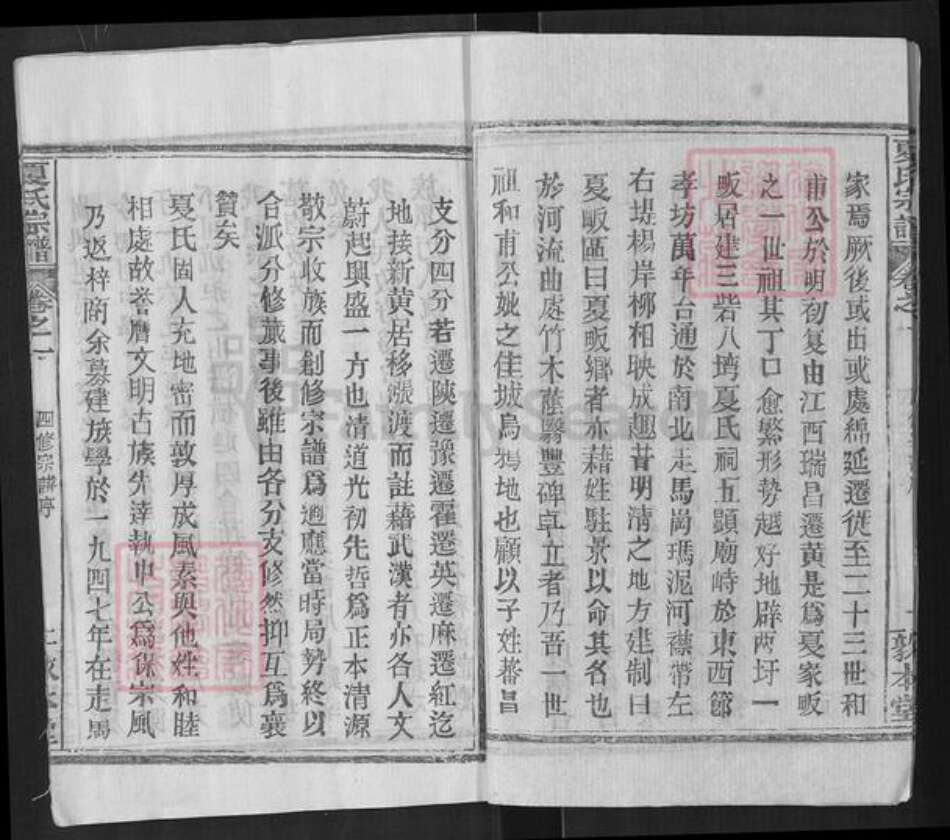 夏氏宗譜
卷之一
敦本堂
家焉厥後或出或處綿延遷徙至二十三世和
甫公於明初复由江西瑞昌遷黄是爲夏家畈
之一世祖其丁口愈繁形势越好地辟两圩一
畈居建三砦八塆夏氏祠五顯廟峙於東西節
孝坊萬年台通於南北走馬崗瑪泥河襟帶左
右堤楊岸柳相映成趣昔明清之地方建制曰
夏畈區曰夏畈鄉者亦藉姓駐景以命其名也
於河流曲處竹木蔭翳豐碑卓立者乃吾一世
祖和甫公妣之佳城烏鴉地也顧以子姓蕃昌
支分四分若遷陝遷豫遷霍遷英遷麻遷紅迄
地接新黄居移漲渡而註藉武漢者亦各人文
蔚起興盛一方也清道光初先哲爲正本清源
敬宗收族而創修宗譜爲適應當時局勢終以
合派分修蕆事後雖由各分支修然抑互爲襄
贊矣
夏氏固人充地密而敦厚成風素與他姓和睦
相處故誉曆文明古族先達執中公爲保宗風
乃返梓商余募建族學於一九四七年在走馬
夏氏宗譜
卷之一
四修宗譜序